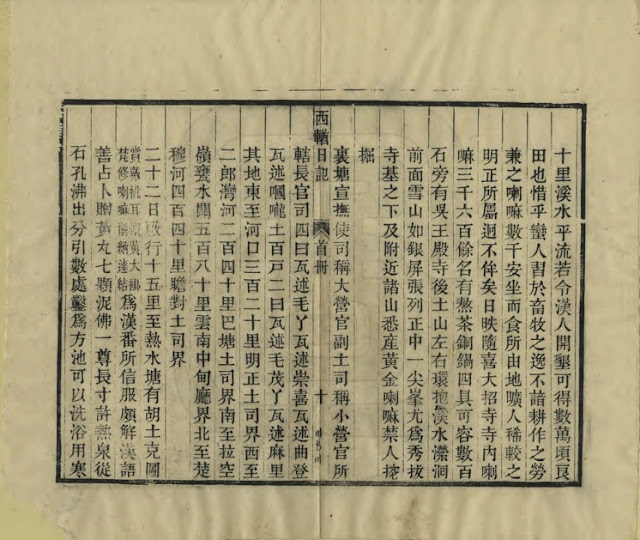 十里溪水平流若令漢人開墾可得數萬頃良
田也惜乎蠻人吉於畜牧之逸不諳耕作之勞
兼之喇嘛數千安坐而食所由地曠人稀較之
明正所屬迥不侔矣日昳隨喜大招寺寺內喇
嘛三千六百餘名有熬茶銅鍋四具可容數百
石旁有吳王殿寺後土山左右環抱溪水瀠洄
前面雪山如銀屏張列正中一尖峯尤爲秀拔
寺基之下及附近諸山悉産黃金喇嘛禁人挖
掘
西輶日記 首冊 十
裏塘宣撫使司稱大營官副土司稱小營官所
轄長官司四曰瓦述毛丫瓦述崇喜瓦述曲登
瓦述嘓嚨土百戸二曰瓦述毛茂丫瓦述麻里
其地東至河口三百二十里明正土司界西至
二郎灣河二百四十里巴塘土司界南至拉空
嶺棄水關五百八十里雲南中甸廳界北至楚
穆河四百四十里瞻對土司界
二十二日啟行十五里至熱水塘有胡土克圖
賞戴批耳披黃大褂
梵修喇嘛朔頼達結爲漢番所信服頗解漢語
善占卜贈黃丸七顆泥佛一尊長寸許熱泉從
石孔沸出分引數處鑿爲方池可以洗浴用寒